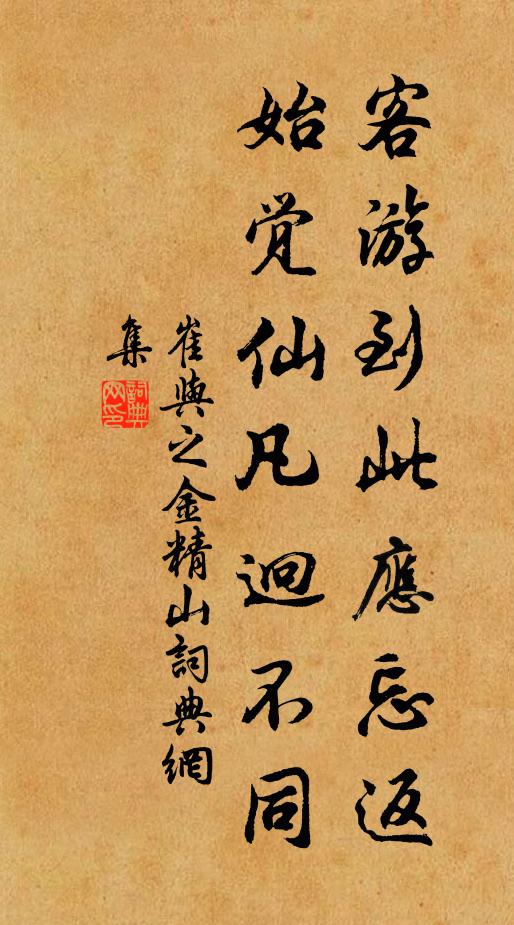 客游到此應忘返
始觉仙凡迥不同
崔與之金精山詞典網
集
詞典
网印